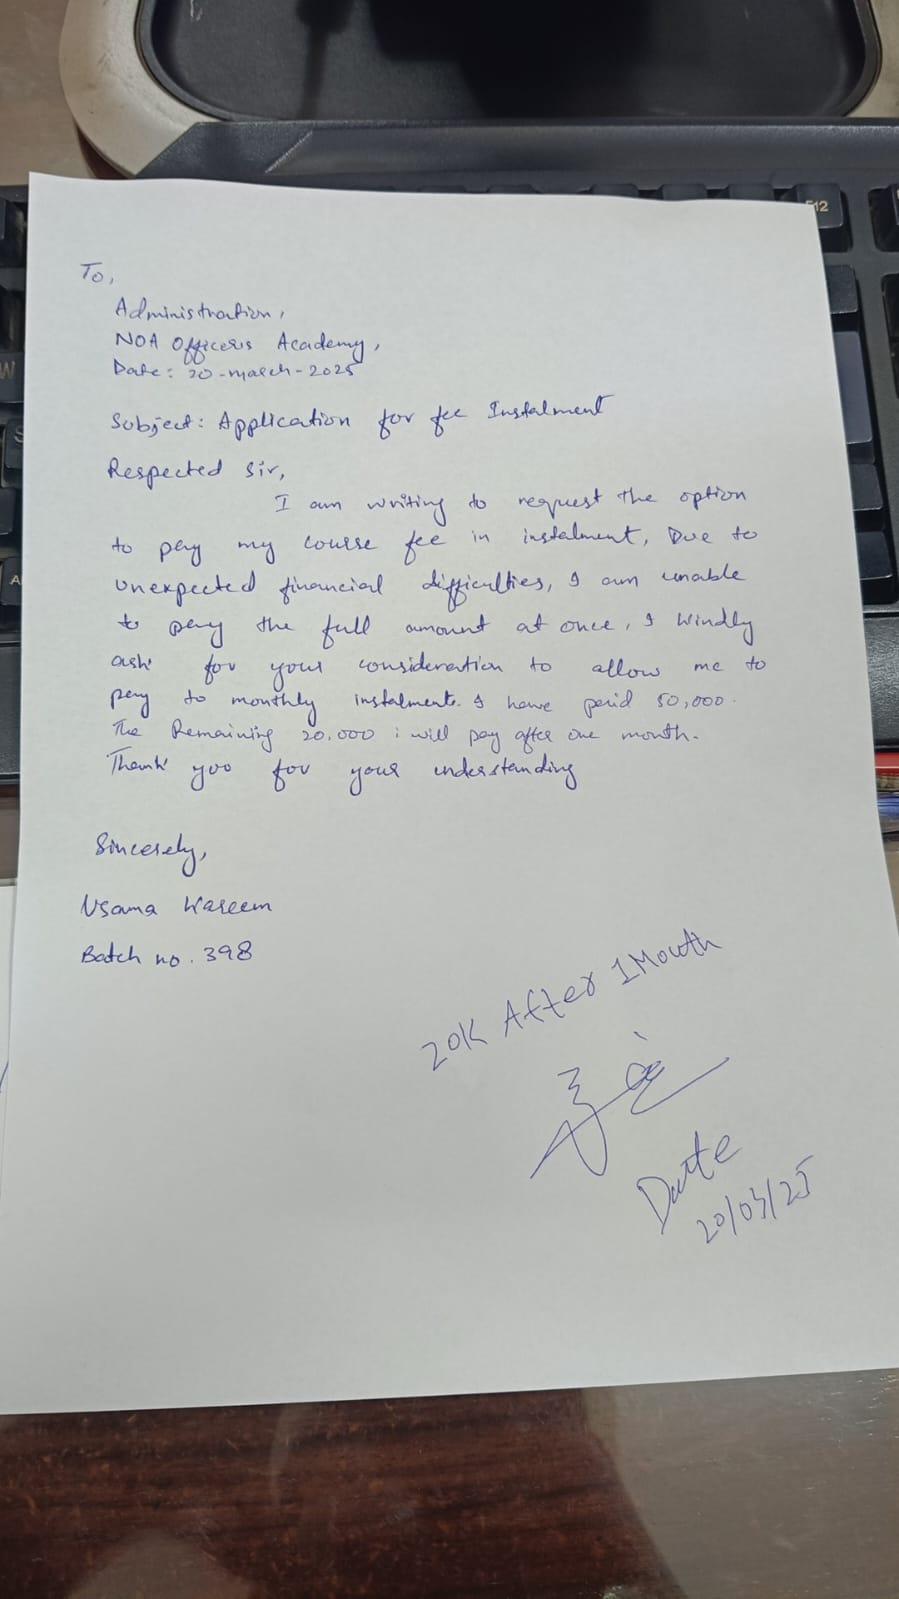 To,
Administration,
NOA Officers Academy,
Date: 20-march-2025
Subject: Application for fee Instalment
Respected Sir,
I am writing to request the option
to pay my course fee in instalment, Due to
unexpected financial difficulties, I am unable
to pay the full amount at once, I kindly
ask for your consideration to allow me to
pay to monthly instalments. I have paid 50,000.
The Remaining 20,000 i will pay after one month.
Thank yoo for your understanding
Sincerely,
Usama Waseem
Batch no. 398
20K After 1 Month
Date
20/03/25
F12